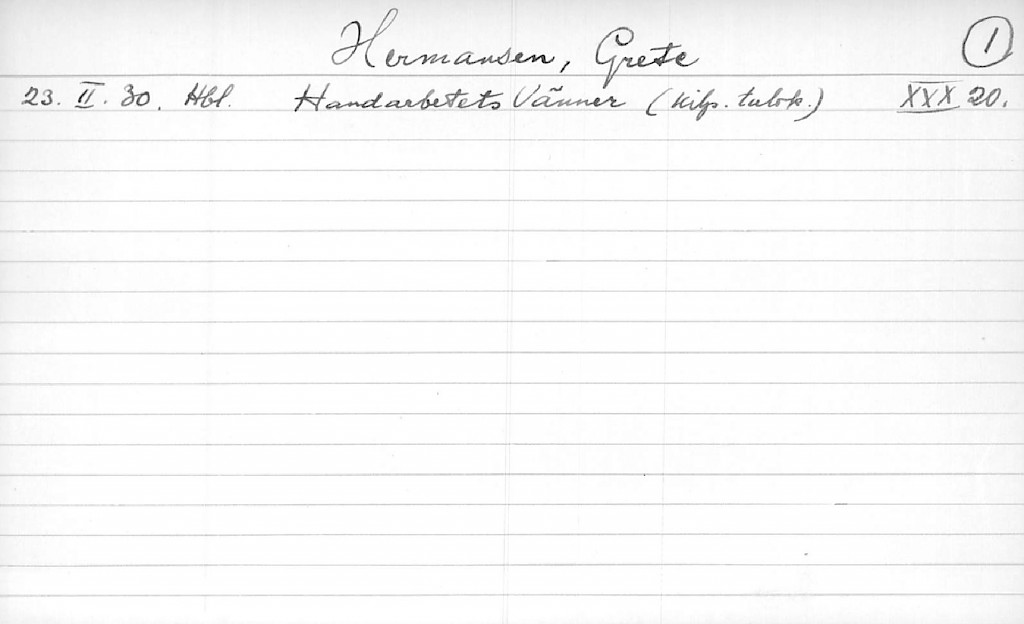 Hermansen, Grete 1
23. II. 30. Hbl. Handarbetets Vänner (kilp. tulok.) XXX 20.